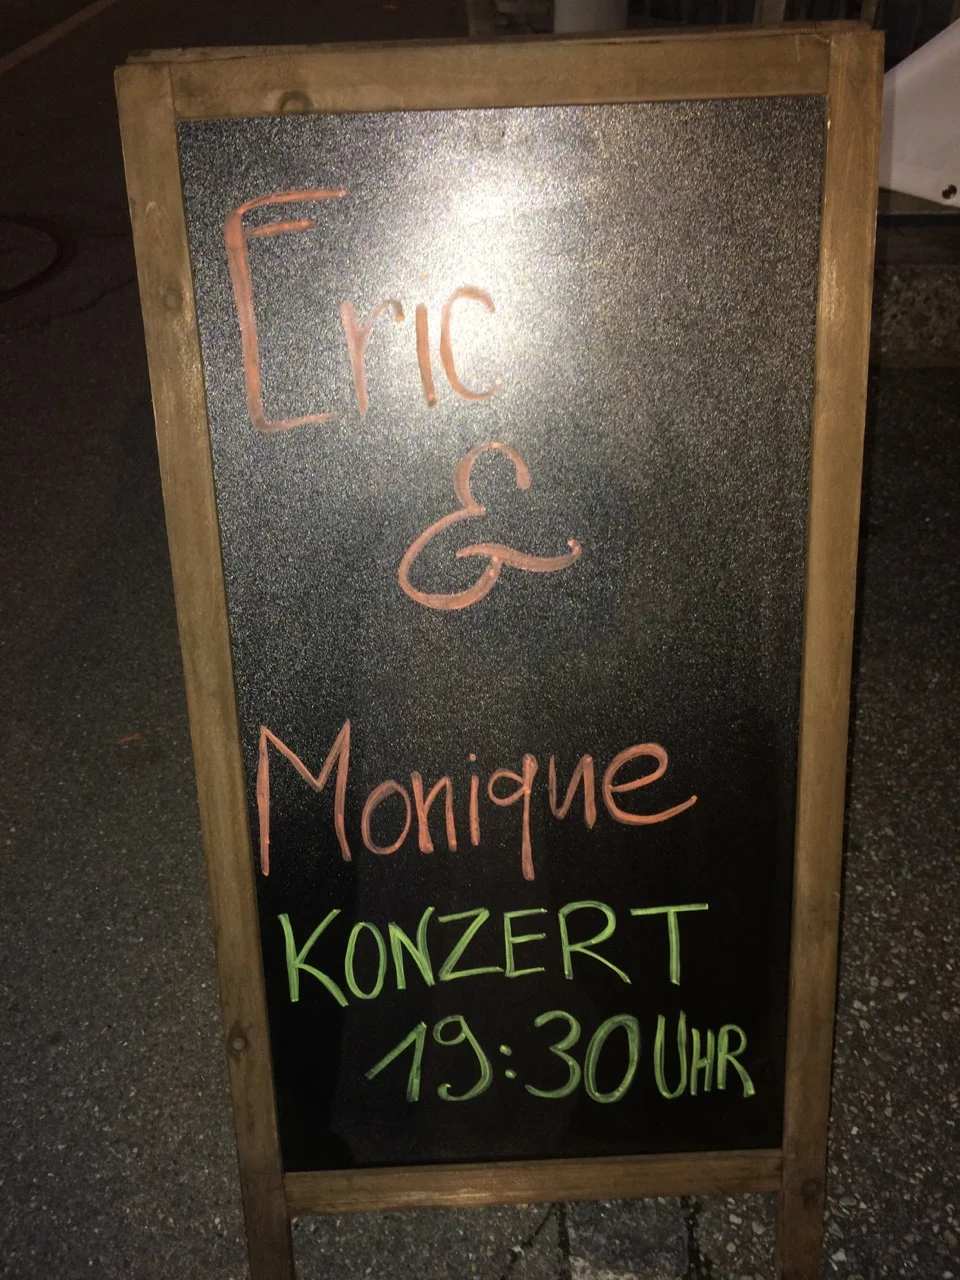 Eric
&
Monique
KONZERT
19:30 UHR